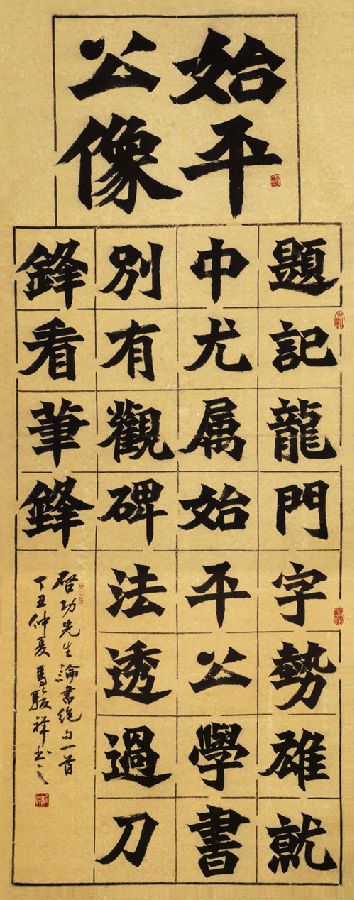 始平
公像
題記龍門字勢雄就
中尤属始平公學書
別有觀碑法透過刀
鋒看筆鋒
啓功先生論書絶句一首
丁丑仲夏馬駿祥書之